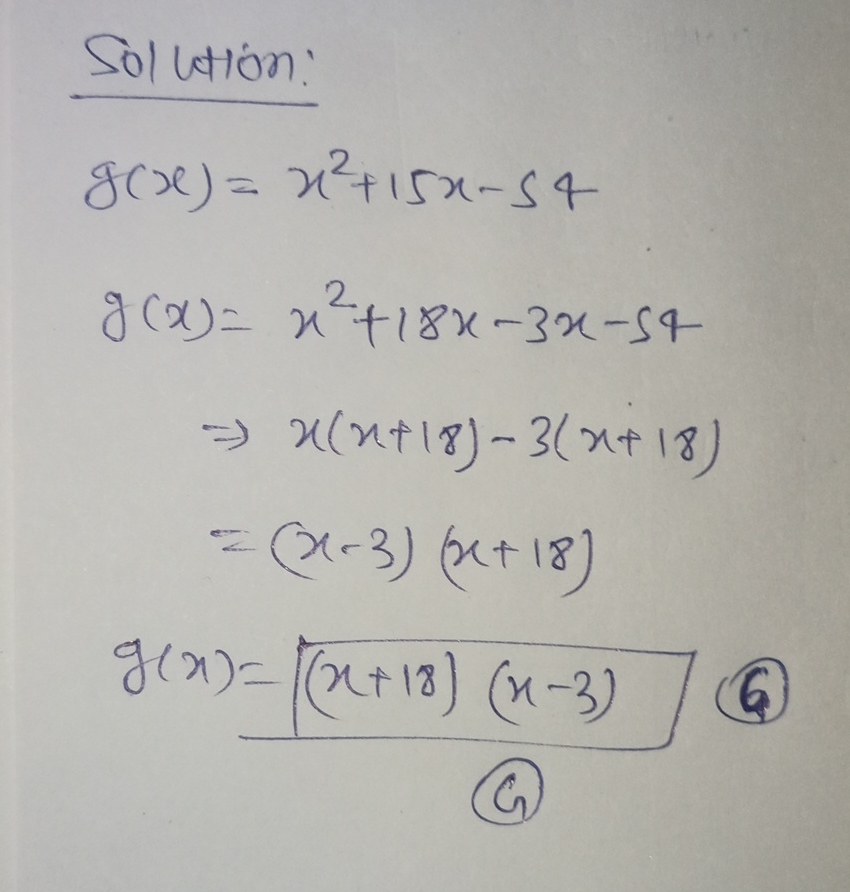 Solution:
g(x) = x²+15x-54
g(x) = x²+18x-3x-54
⇒ x(x+18)-3(x+18)
= (x-3) (x+18)
g(x) = (x+18) (x-3) G
G